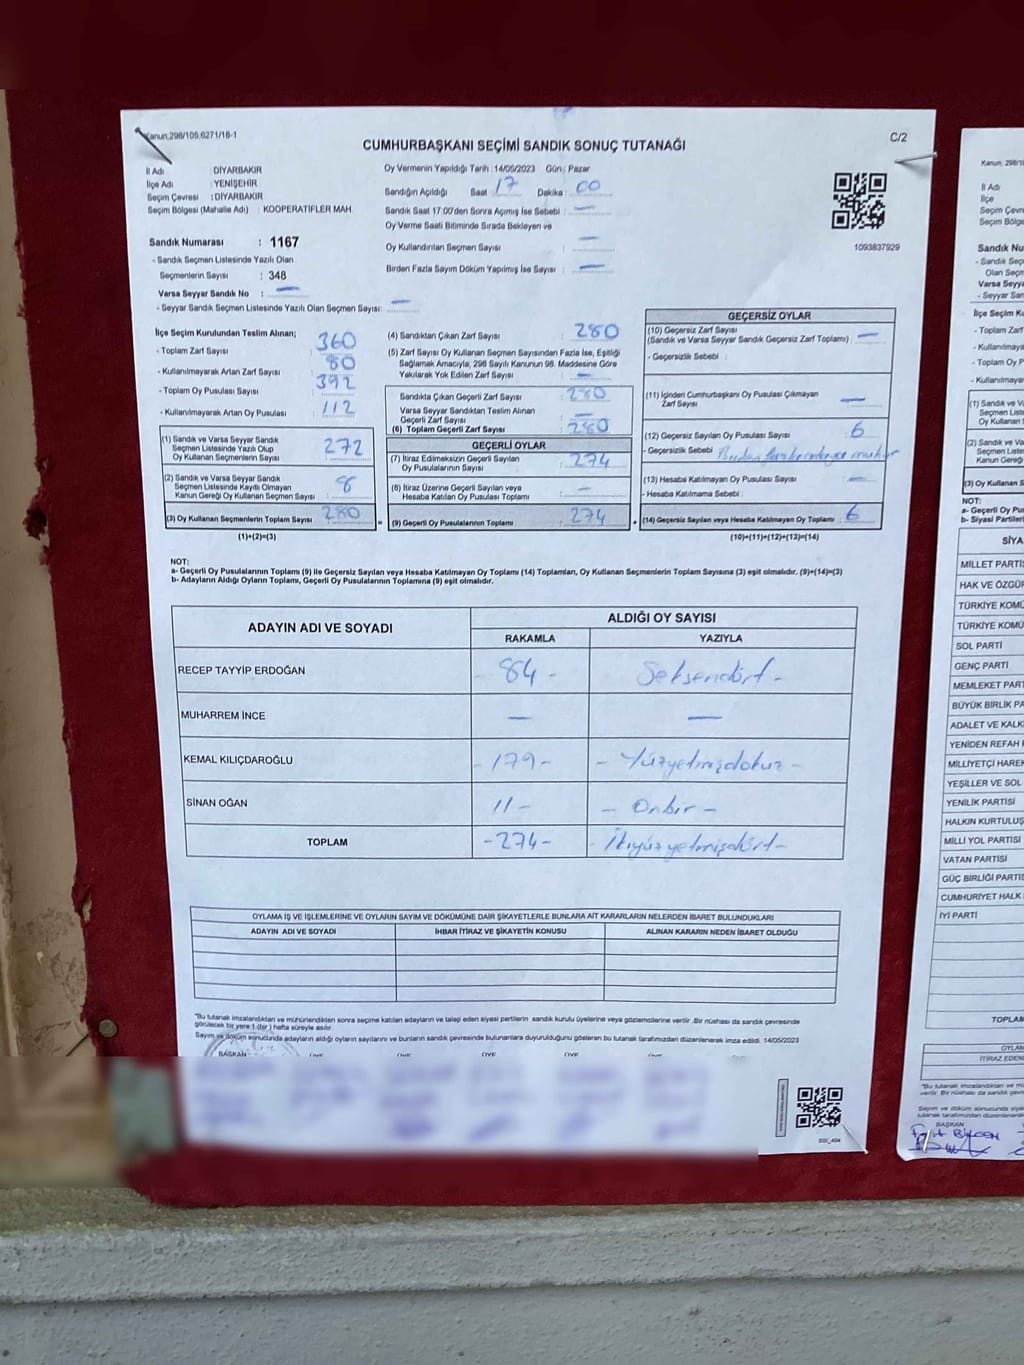 Kanun;298/105;6271/18-1
C/2
CUMHURBAŞKANI SEÇİMİ SANDIK SONUÇ TUTANAĞI
İl Adı : DİYARBAKIR
İlçe Adı : YENİŞEHİR
Seçim Çevresi : DİYARBAKIR
Seçim Bölgesi (Mahalle Adı) : KOOPERATİFLER MAH.
Sandık Numarası : 1167
- Sandık Seçmen Listesinde Yazılı Olan
Seçmenlerin Sayısı : 348
Varsa Seyyar Sandık No : —
- Seyyar Sandık Seçmen Listesinde Yazılı Olan Seçmen Sayısı: —
Oy Vermenin Yapıldığı Tarih :14/05/2023 Gün : Pazar
Sandığın Açıldığı Saat : 17 Dakika : 00
Sandık Saat 17:00'den Sonra Açımış İse Sebebi : —
Oy Verme Saati Bitiminde Sırada Bekleyen ve
Oy Kullandırılan Seçmen Sayısı : —
Birden Fazla Sayım Döküm Yapılmış İse Sayısı : —
1093837929
İlçe Seçim Kurulundan Teslim Alınan;
- Toplam Zarf Sayısı : 360
- Kullanılmayarak Artan Zarf Sayısı : 80
- Toplam Oy Pusulası Sayısı : 392
- Kullanılmayarak Artan Oy Pusulası : 112
(1) Sandık ve Varsa Seyyar Sandık
Seçmen Listesinde Yazılı Olup
Oy Kullanan Seçmenlerin Sayısı : 272
(2) Sandık ve Varsa Seyyar Sandık
Seçmen Listesinde Kayıtlı Olmayan
Kanun Gereği Oy Kullanan Seçmen Sayısı : 8
(3) Oy Kullanan Seçmenlerin Toplam Sayısı : 280
(1)+(2)=(3)
(4) Sandıktan Çıkan Zarf Sayısı : 280
(5) Zarf Sayısı Oy Kullanan Seçmen Sayısından Fazla İse, Eşitliği
Sağlamak Amacıyla, 298 Sayılı Kanunun 98. Maddesine Göre
Yakılarak Yok Edilen Zarf Sayısı : —
Sandıkta Çıkan Geçerli Zarf Sayısı : 280
Varsa Seyyar Sandıktan Teslim Alınan
Geçerli Zarf Sayısı : —
(6) Toplam Geçerli Zarf Sayısı : 280
GEÇERLİ OYLAR
(7) İtiraz Edilmeksizin Geçerli Sayılan
Oy Pusulalarının Sayısı : 274
(8) İtiraz Üzerine Geçerli Sayılan veya
Hesaba Katılan Oy Pusulaları Toplamı : —
(9) Geçerli Oy Pusulalarının Toplamı : 274
GEÇERSİZ OYLAR
(10) Geçersiz Zarf Sayısı
(Sandık ve Varsa Seyyar Sandık Geçersiz Zarf Toplamı) : —
- Geçersizlik Sebebi :
(11) İçinden Cumhurbaşkanı Oy Pusulası Çıkmayan
Zarf Sayısı : —
(12) Geçersiz Sayılan Oy Pusulası Sayısı : 6
- Geçersizlik Sebebi : Birden fazla mühür
(13) Hesaba Katılmayan Oy Pusulası Sayısı : —
- Hesaba Katılmama Sebebi :
(14) Geçersiz Sayılan veya Hesaba Katılmayan Oy Toplamı : 6
(10)+(11)+(12)+(13)=(14)
NOT:
a- Geçerli Oy Pusulalarının Toplamı (9) ile Geçersiz Sayılan veya Hesaba Katılmayan Oy Toplamı (14) Toplamları, Oy Kullanan Seçmenlerin Toplam Sayısına (3) eşit olmalıdır. (9)+(14)=(3)
b- Adayların Aldığı Oyların Toplamı, Geçerli Oy Pusulalarının Toplamına (9) eşit olmalıdır.
ADAYIN ADI VE SOYADI
ALDIĞI OY SAYISI
RAKAMLA YAZIYLA
RECEP TAYYİP ERDOĞAN - 84 - Seksendört -
MUHARREM İNCE — —
KEMAL KILIÇDAROĞLU - 179 - - Yüzyetmişdokuz -
SİNAN OĞAN 11 - - Onbir -
TOPLAM - 274 - - İkiyüzyetmişdört -
OYLAMA İŞ VE İŞLEMLERİNE VE OYLARIN SAYIM VE DÖKÜMÜNE DAİR ŞİKAYETLERLE BUNLARA AİT KARARLARIN NELERDEN İBARET BULUNDUKLARI
ADAYIN ADI VE SOYADI İHBAR İTİRAZ VE ŞİKAYETİN KONUSU ALINAN KARARIN NEDEN İBARET OLDUĞU
"Bu tutanak imzalandıktan ve mühürlendikten sonra seçime katılan adayların ve talep eden siyasi partilerin sandık kurulu üyelerine veya gözlemcilerine verilir. Bir nüshası da sandık çevresinde
görülecek bir yere 1 (bir) hafta süreyle asılır.
Sayım ve döküm sonucunda adayların aldığı oyların sayılarını ve bunların sandık çevresinde bulunanlara duyurulduğunu gösteren bu tutanak tarafımızdan düzenlenerek imza edildi. 14/05/2023
BAŞKAN ÜYE ÜYE ÜYE ÜYE ÜYE
Kanun; 298/1
İl Adı
İlçe
Seçim Çevre
Seçim Bölg
Sandık Nu
- Sandık Seç
Olan Seçm
Varsa Seyya
- Seyyar San
İlçe Seçim K
- Toplam Zarf
- Kullanılmaya
- Toplam Oy P
- Kullanılmaya
(1) Sandık ve Va
Seçmen Liste
Oy Kullanan
(2) Sandık ve Va
Seçmen Liste
Kanun Gereği
(3) Oy Kullanan S
NOT:
a- Geçerli Oy Pu
b- Siyasi Partiler
SİYA
MİLLET PARTİS
HAK VE ÖZGÜR
TÜRKİYE KOMÜ
TÜRKİYE KOMÜ
SOL PARTİ
GENÇ PARTİ
MEMLEKET PART
BÜYÜK BİRLİK PA
ADALET VE KALK
YENİDEN REFAH
MİLLİYETÇİ HAREK
YEŞİLLER VE SOL
YENİLİK PARTİSİ
HALKIN KURTULUŞ
MİLLİ YOL PARTİSİ
VATAN PARTİSİ
GÜÇ BİRLİĞİ PARTİS
CUMHURİYET HALK
İYİ PARTİ
TOPLAM
OYLAM
İTİRAZ EDEN
BAŞKAN